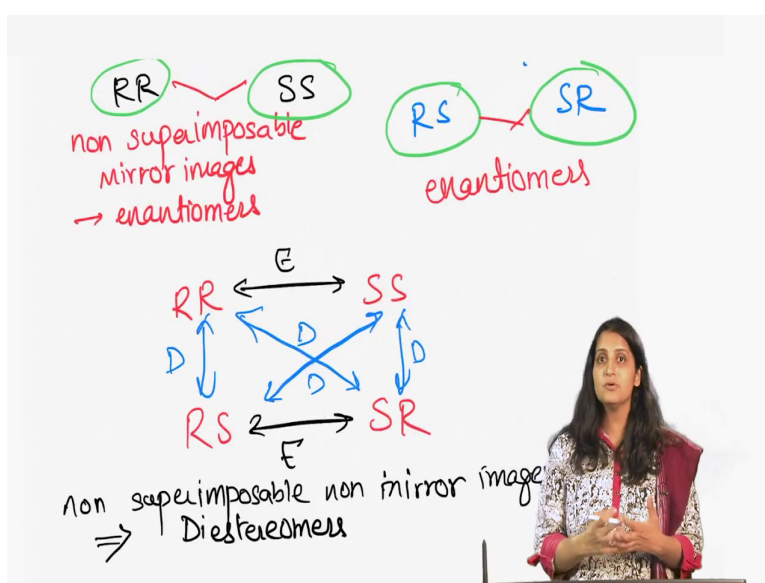 RR SS
RS SR
non superimposable
mirror images
→ enantiomers
enantiomers
E
RR SS
D D D D
RS SR
E
non superimposable non mirror image
⇒ Diestereomers